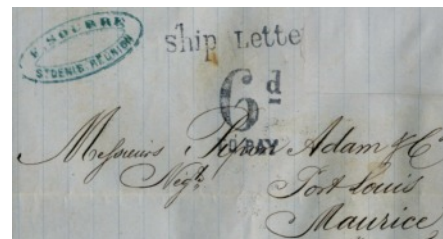 ST DENIS RÉUNION
Ship Letter
6d
TO PAY
Messieurs Pipon Adam & Co
Negts
Port Louis
Maurice